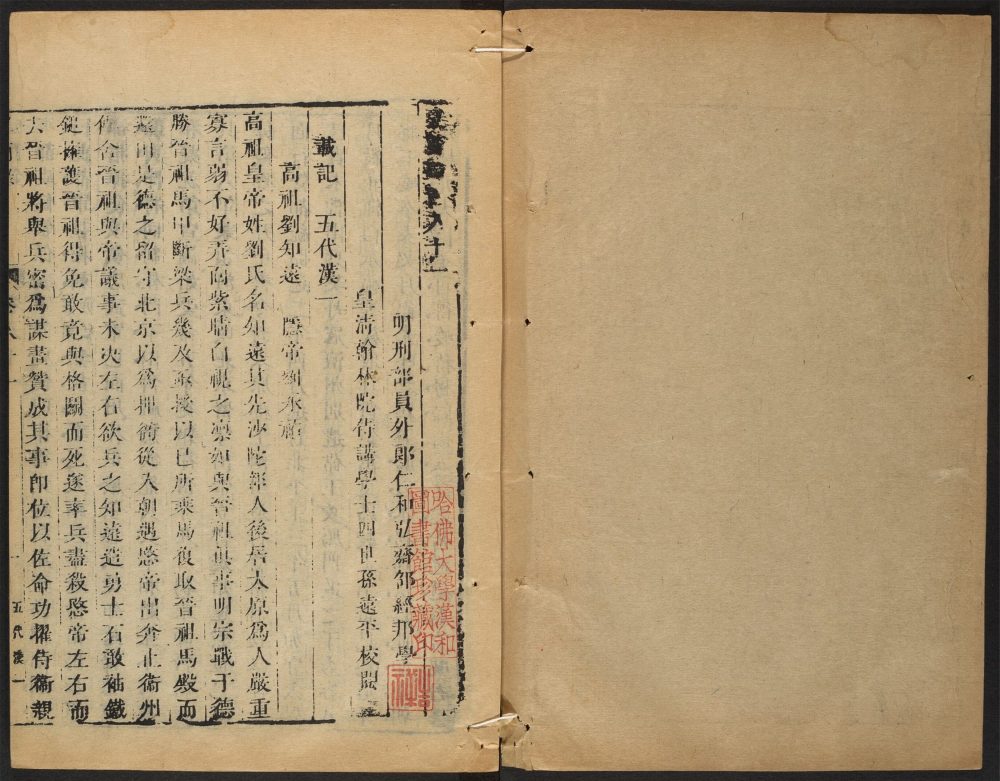 明刑部員外郎仁和弘齋邵經邦學
皇淸翰林院侍講學士四世孫遠平校閱
載記　五代漢一
高祖劉知遠　隱帝劉承祐
高祖皇帝姓劉氏名知遠其先沙陀部人後居太原爲人嚴重
寡言弱不好弄面紫睛白視之凜如與晉祖俱事明宗戰于德
勝晉祖馬甲斷梁兵幾及乘馬復取晉祖馬殿而
還由是德之留守北京以爲押衙從入朝遇愍帝出奔止衞州
傳舍晉祖與帝議事未決左右欲兵之知遠遣勇士石敢袖鐵
鎚擁護晉祖得免敢竟與格鬭而死遂率兵盡殺愍帝左右而
去晉祖將舉兵密爲謀畫贊成其事卽位以佐命功擢侍衞親
五代漢一
哈佛大學漢和
圖書館珍藏印